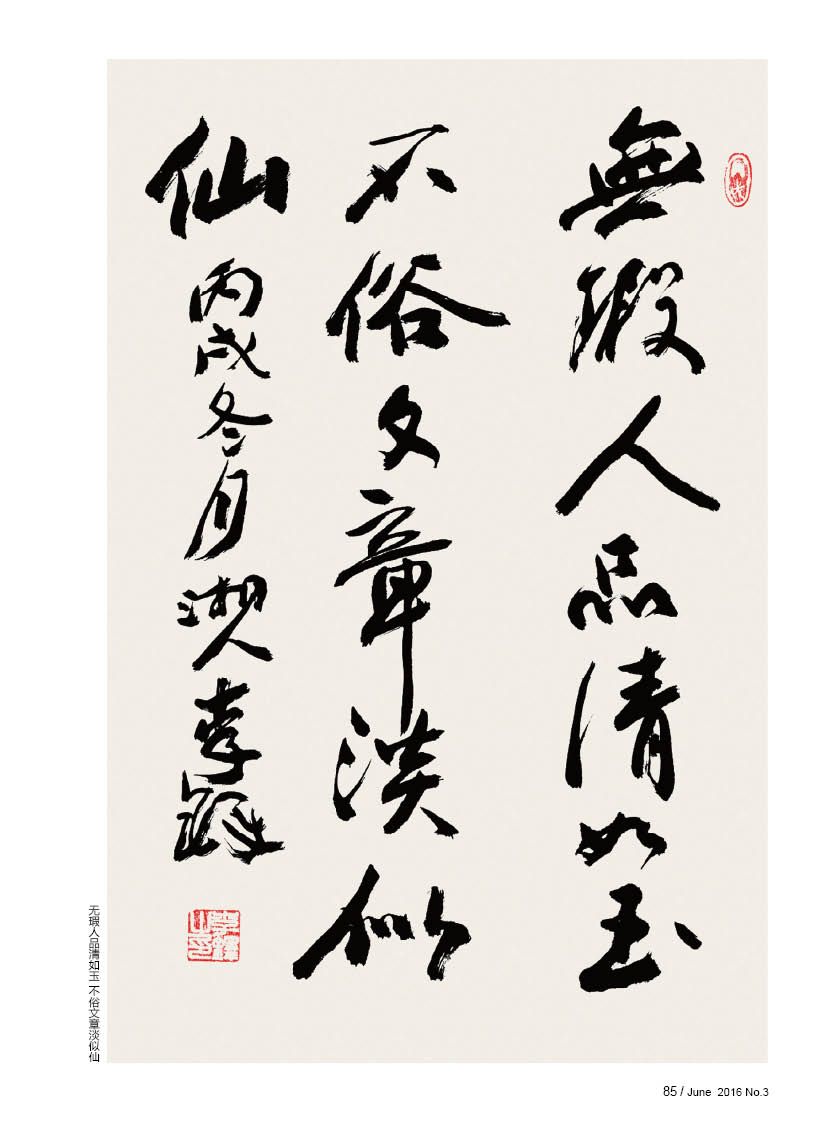 無瑕人品清如玉
不俗文章淡似
仙 丙戌冬月 湘人 李鐸
李鐸之印
无瑕人品清如玉 不俗文章淡似仙
85 / June 2016 No.3